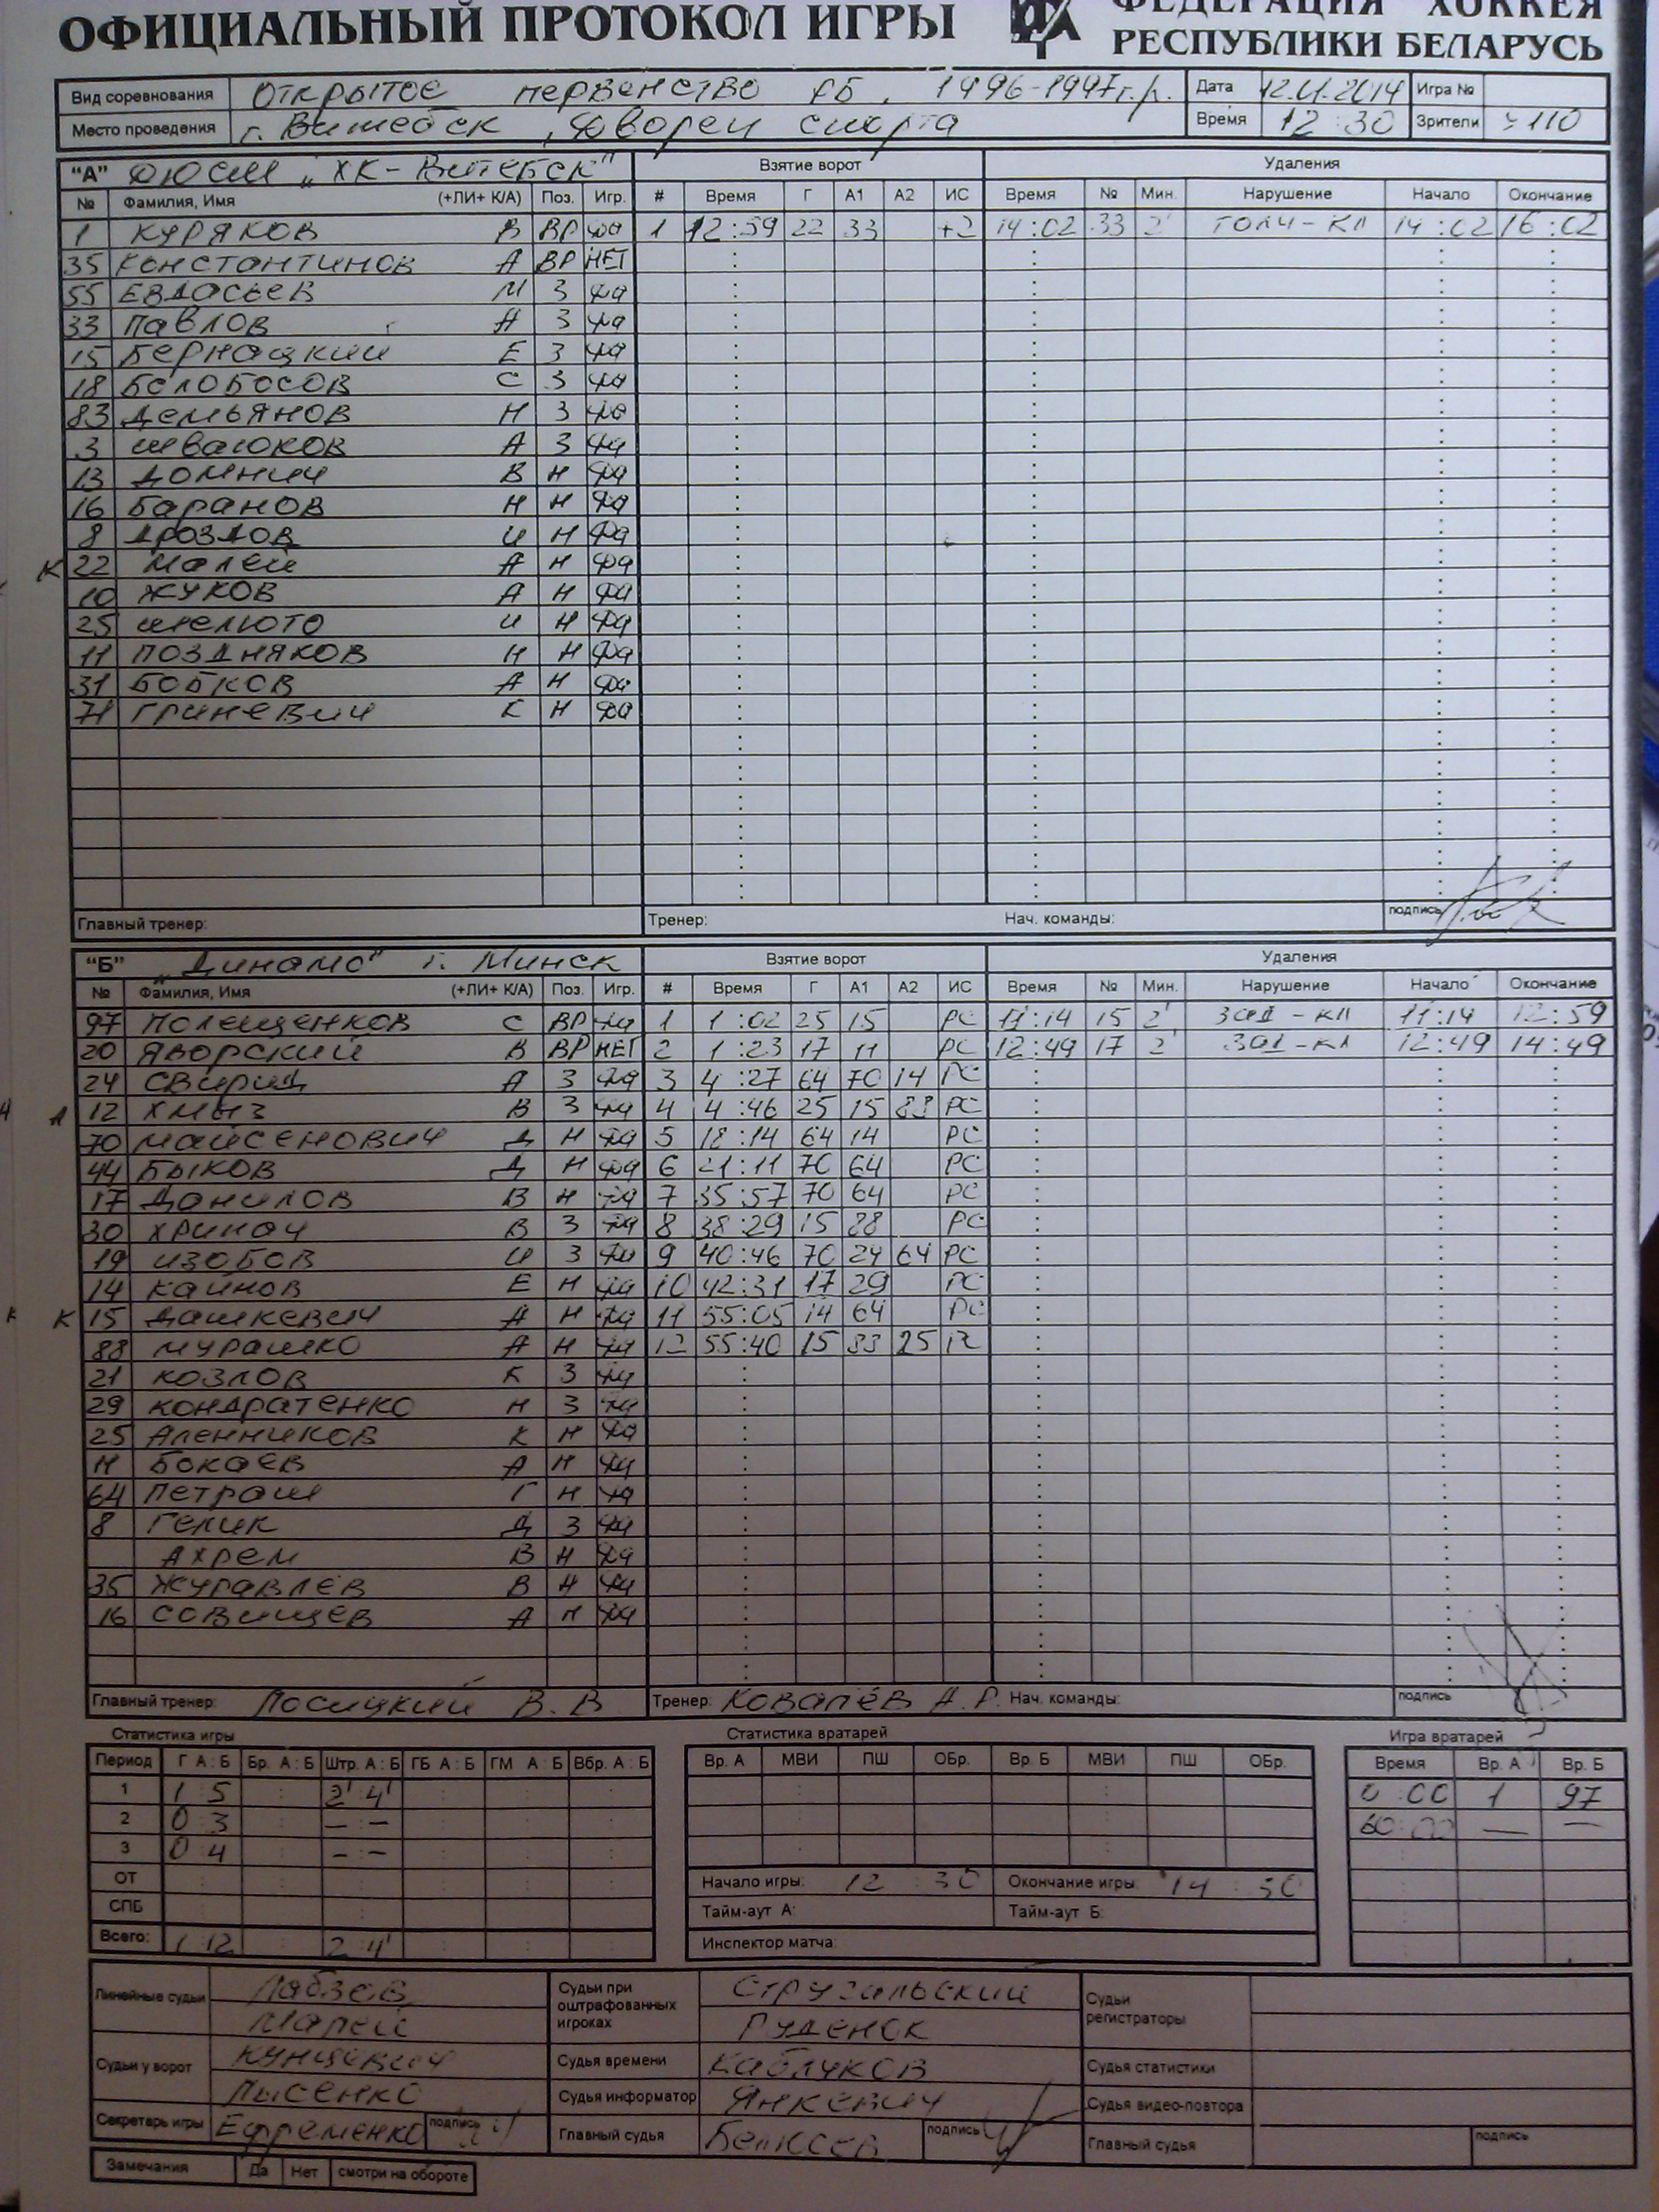 ОФИЦИАЛЬНЫЙ ПРОТОКОЛ ИГРЫ ФЕДЕРАЦИЯ ХОККЕЯ
РЕСПУБЛИКИ БЕЛАРУСЬ
Вид соревнования Открытое первенство РБ, 1996-1997г.р. Дата 12.11.2014 Игра №
Место проведения г. Витебск, Дворец спорта Время 12:30 Зрители ≈110
"А" ДЮСШ "ХК-Витебск" Взятие ворот Удаления
№ Фамилия, Имя (+ЛИ+ К/А) Поз. Игр. # Время Г А1 А2 ИС Время № Мин. Нарушение Начало Окончание
1 Куряков В ВР да 1 12:59 22 33 +2 14:02 33 2' ТОЛЧ-КЛ 14:02 16:02
35 Константинов А ВР НЕТ
55 Евдосьев М З да
33 Павлов А З да
15 Бернацкий Е З да
18 Белобосов С З да
83 Демьянов Н З да
3 Шваюков А З да
13 Домнич В Н да
16 Баранов Н Н да
8 Дроздов И Н да
К 22 Малей А Н да
10 Жуков А Н да
25 Шелюто И Н да
11 Поздняков Н Н да
31 Бобков А Н да
71 Гриневич К Н да
Главный тренер: Тренер: Нач. команды: подпись
"Б" "Динамо" г. Минск Взятие ворот Удаления
№ Фамилия, Имя (+ЛИ+ К/А) Поз. Игр. # Время Г А1 А2 ИС Время № Мин. Нарушение Начало Окончание
97 Полещенков С ВР да 1 1:02 25 15 РС 11:14 15 2' 11:14 12:59
20 Яворский В ВР НЕТ 2 1:23 17 11 РС 12:49 17 2' 12:49 14:49
24 Свирид А З да 3 4:27 64 70 14 РС
А 12 Хмыз В З да 4 4:46 25 15 88 РС
70 Майсенович Д Н да 5 18:14 64 14 РС
44 Быков Д Н да 6 21:11 70 64 РС
17 Данилов В Н да 7 35:57 70 64 РС
30 Хринач В З да 8 38:29 15 88 РС
19 Изобов И З да 9 40:46 70 24 64 РС
14 Каинов Е Н да 10 42:31 17 29 РС
К 15 Дашкевич А Н да 11 55:05 14 64 РС
88 Мурашко А Н да 12 55:40 15 88 25 РС
21 Козлов К З да
29 Кондратенко Н З да
25 Аленников К Н да
11 Бокаев А Н да
64 Петраш Г Н да
8 Гелик Д З да
Ахрем В Н да
35 Журавлёв В Н да
16 Совищев А Н да
Главный тренер: Лосицкий В.В Тренер: Ковалёв А.Р. Нач. команды: подпись
Статистика игры Статистика вратарей Игра вратарей
Период Г А:Б Бр. А:Б Штр. А:Б ГБ А:Б ГМ А:Б Вбр. А:Б Вр. А МВИ ПШ ОБр. Вр. Б МВИ ПШ ОБр. Время Вр. А Вр. Б
1 1:5 2' 4' 0:00 1 97
2 0:3 — — 60:00 — —
3 0:4 — —
ОТ Начало игры: 12:30 Окончание игры: 14:50
СПБ Тайм-аут А: Тайм-аут Б:
Всего: 1:12 2:4' Инспектор матча:
Линейные судьи Лабзев Судьи при оштрафованных игроках Стругальский Судьи регистраторы
Малей Руденок
Судьи у ворот Кунцевич Судья времени Каблуков Судья статистики
Лысенко Судья информатор Янкевич Судья видео-повтора
Секретарь игры Ефременко подпись Главный судья Белюсев подпись Главный судья подпись
Замечания Да Нет смотри на обороте